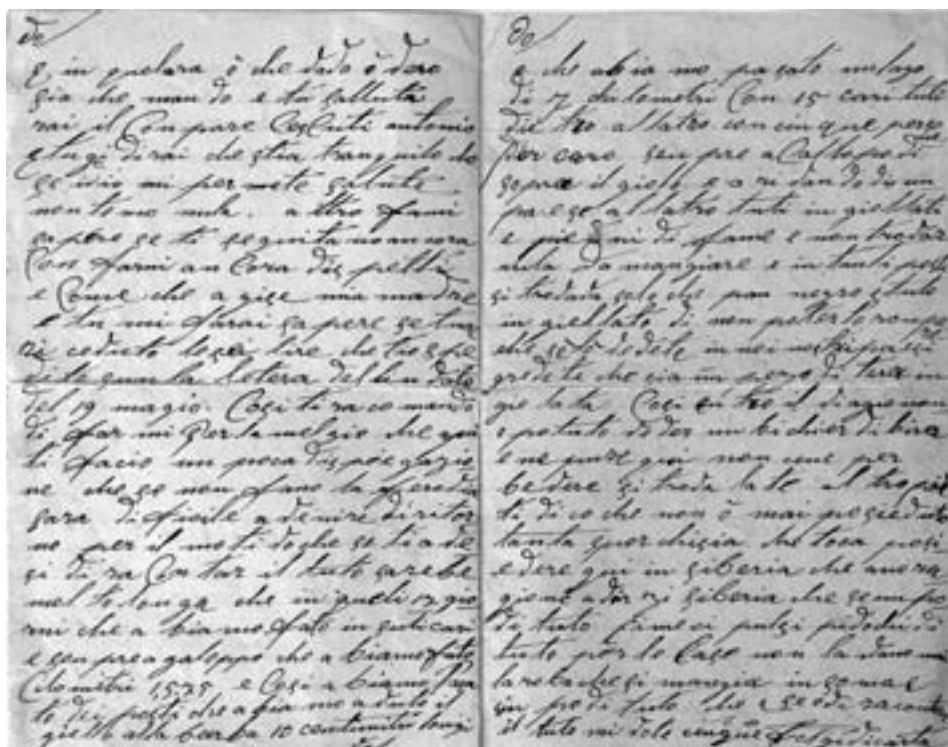 e in quelura ò che dado ò dare
gia che man do e tu salluta
rai il Compare antonio
e lugi dirai che stia tranquilo che
se idio mi per mete salute
non temo nula. altro fami
sapere se ti seguita no ancora
Con farmi an Cora dis petti
e Come che a gise mia madre
e tu mi farai sapere se tu
ri ceduto le lire che tio spe
dite la letera del
del 19 magio. Cosi ti ra co mando
di far mi il melgio che qui
ti facio un poca di spie gazio
ne che se non fano la
sara dificile a denire di ritor
no per il moti do che se ti a de
si di ra Con tar il tuto sarebe
mol to longa che in queli 17 gio
rni che a bia mo fato in
e sen pre a galoppo che a biamo fato
Cilometri 1575 e Cosi a biamo
to dei posti che a bia mo a duto il
giello alla barba 10 centimitri longi
e che abia mo pasato un lago
di 7 chilometri Con 15 cari tuto
die tro al latro con cin que perso
per caro, sen pre a Caltopo di
sopra il giello e a ri dan do di un
paese al latro tuti in giellati
e pie ni di fame e non trodar
nula da mangiare e in tanti posti
si trodada solo che pan negro e tuto
in giellato di non poter lo rompe
che se lo dedete in nei nostri paesi
credete che sia un pezo di tera in
gie lata Cosi en tro il di ano non
è potuto de der un bichier di bira
e ne pure qui non cene per
bedere si troda la te altro poi
ti di co che non ò mai posiedut
tanta che toca posi
edere qui in siberia che ano ra
gione a dir ri siberia che so un po
di tuto Cimeci pulci pidochi di
tuto per le Case non la dano
la roba che si mangia in soma è
un po di tuto che se o di raconta
il tuto mi dole